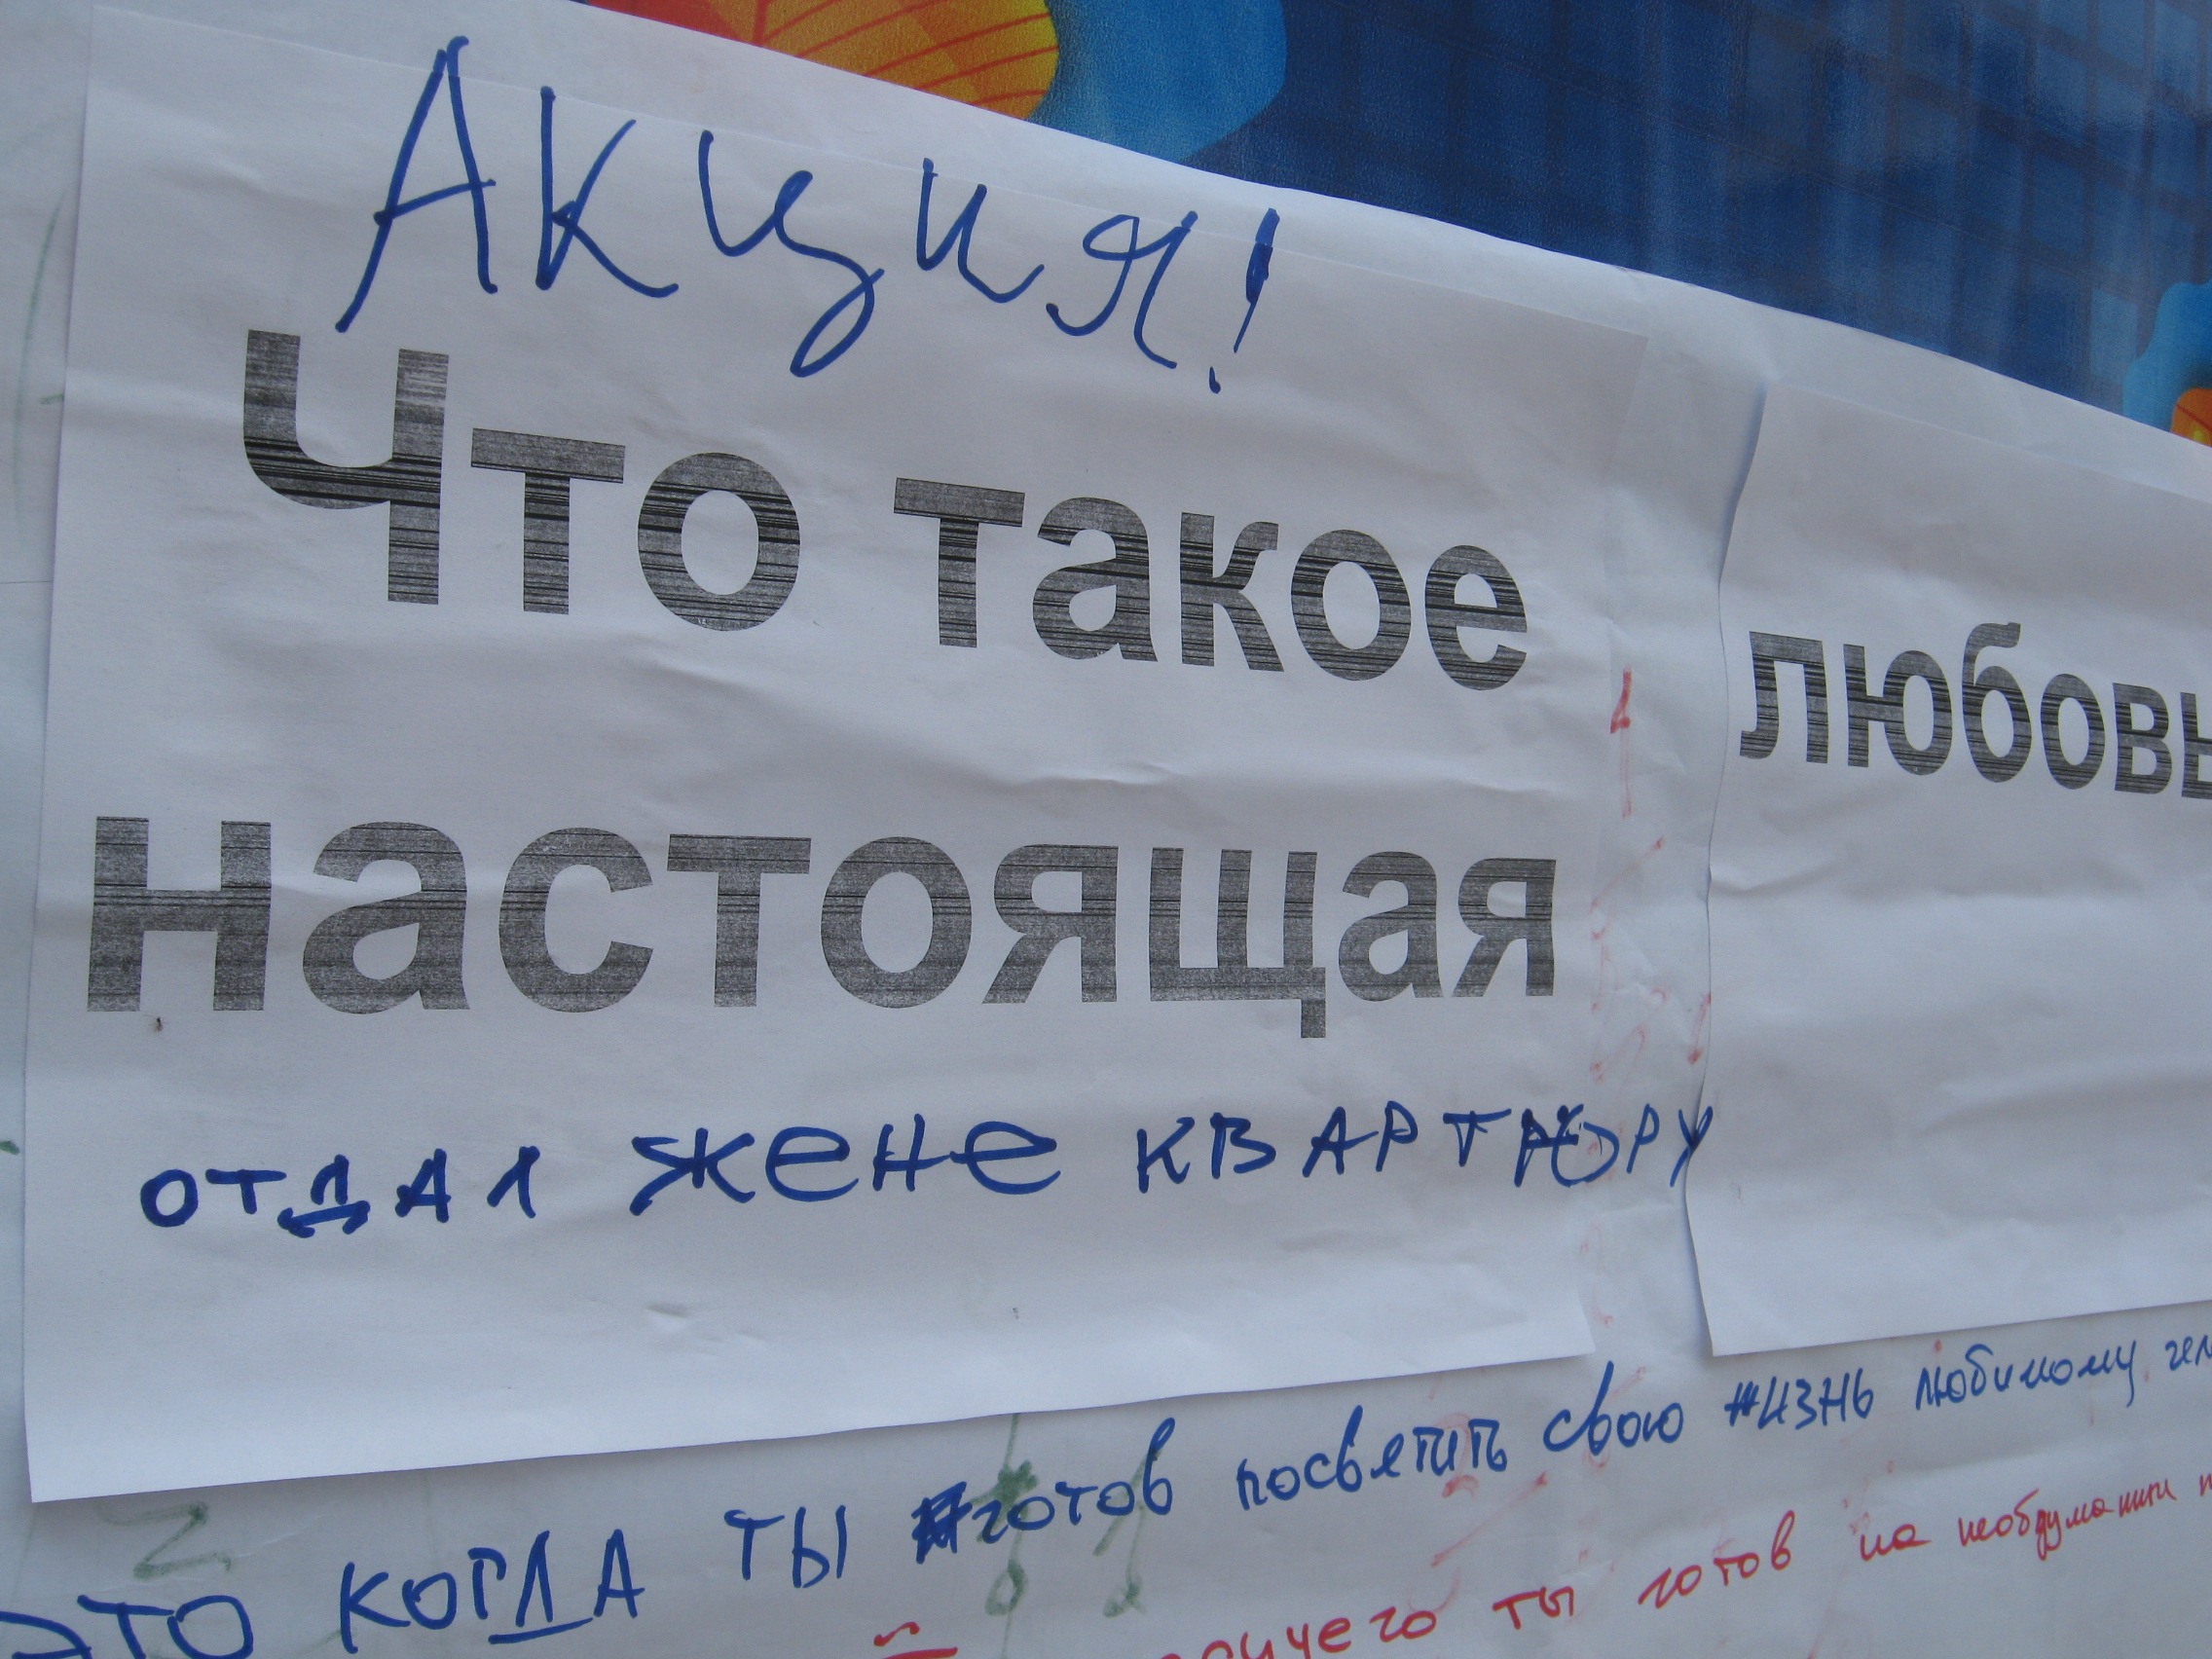 Акция!
Что такое
настоящая
любовь
отдал жене квартюру
это когда ты готов посвятить свою жизнь любимому
ты готов на необдумании